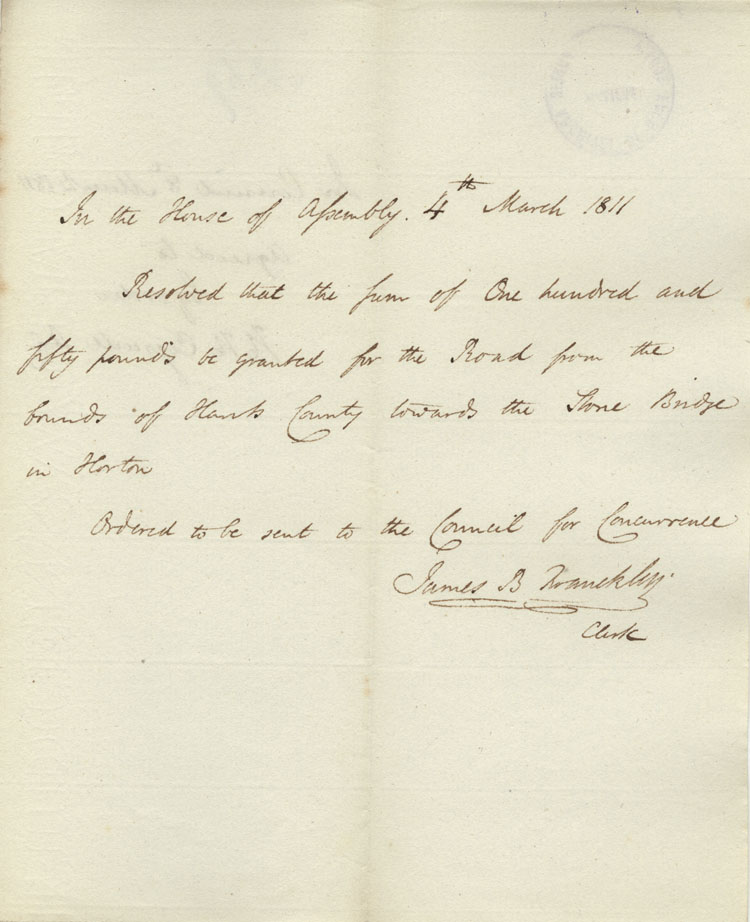 In the House of Assembly. 4th March 1811
Resolved that the sum of One hundred and
fifty pounds be granted for the Road from the
bounds of Hants County towards the Stone Bridge
in Horton
Ordered to be sent to the Council for Concurrence
James B Francklin
Clerk